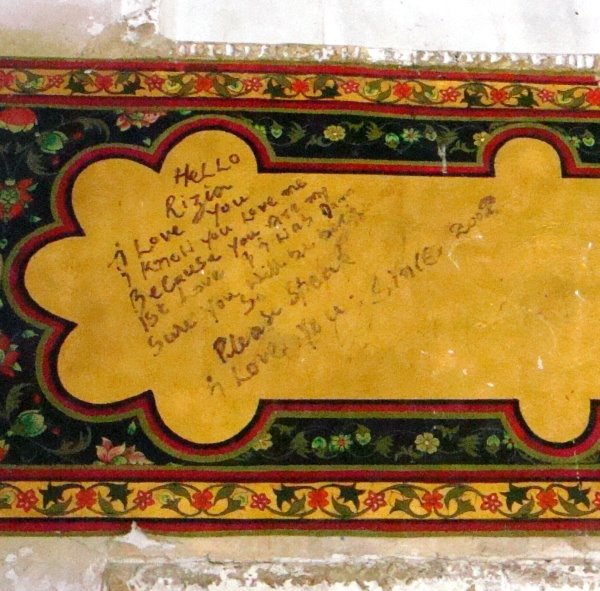 HELLO
Rizin
i Love You
i know You Love me
Because You are my
1st Love
Sure You will be
So
Please
i Love You. SINCE 2002